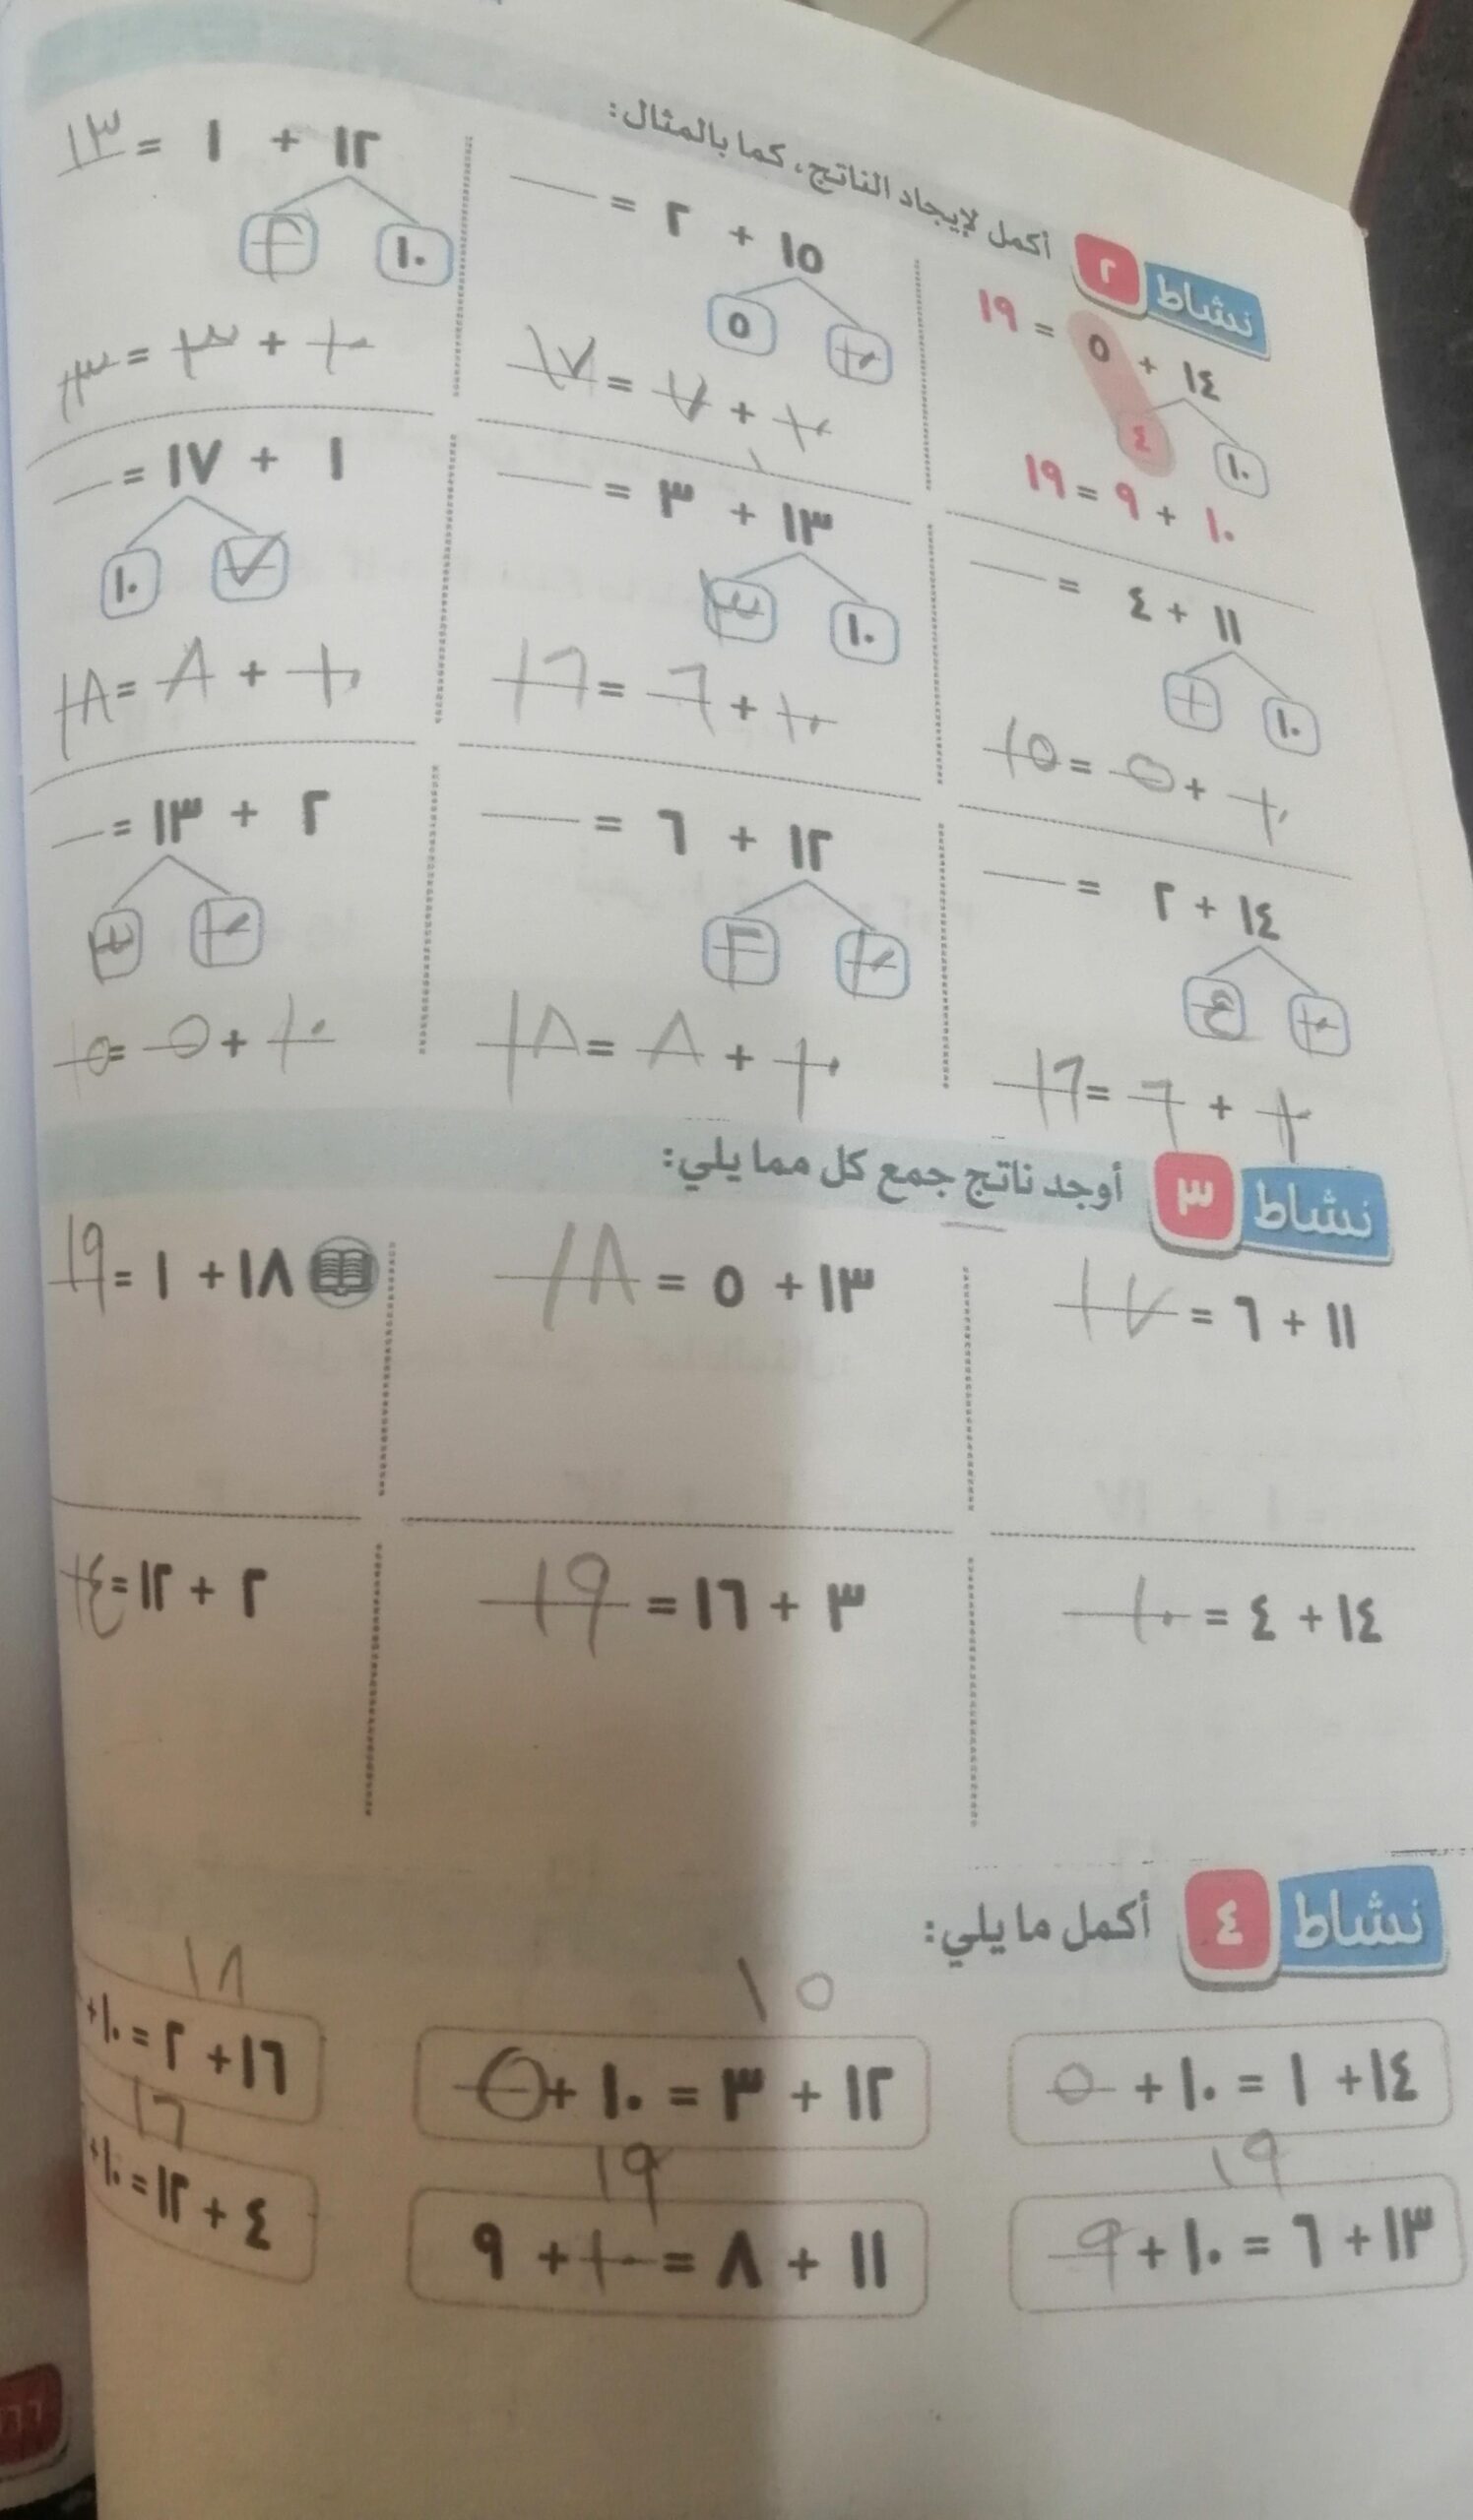 نشاط ٢ أكمل لإيجاد الناتج، كما بالمثال:
١٤ + ٥ = ١٩
١٠ ٤
١٠ + ٩ = ١٩
١٥ + ٢ =
١٠ ٥
١٠ + ٧ = ١٧
١٢ + ١ = ١٣
١٠ ٢
١٠ + ٣ = ١٣
١١ + ٤ =
١٠ ١
١٠ + ٥ = ١٥
١٣ + ٣ =
١٠ ٣
١٠ + ٦ = ١٦
١ + ١٧ =
٧ ١٠
١٠ + ٨ = ١٨
١٤ + ٢ =
١٠ ٤
١٠ + ٦ = ١٦
١٢ + ٦ =
١٠ ٢
١٠ + ٨ = ١٨
٢ + ١٣ =
١٠ ٣
١٠ + ٥ = ١٥
نشاط ٣ أوجد ناتج جمع كل مما يلي:
١١ + ٦ = ١٧
١٣ + ٥ = ١٨
١٨ + ١ = ١٩
١٤ + ٤ = ١٠
٣ + ١٦ = ١٩
٢ + ١٢ = ١٤
نشاط ٤ أكمل ما يلي:
١٥
١٨
١٤ + ١ = ١٠ + ٥
١٢ + ٣ = ١٠ + ٥
١٦ + ٢ = ١٠ +
١٩
١٩
١٦
١٣ + ٦ = ١٠ + ٩
١١ + ٨ = ١٠ + ٩
٤ + ١٢ = ١٠ +